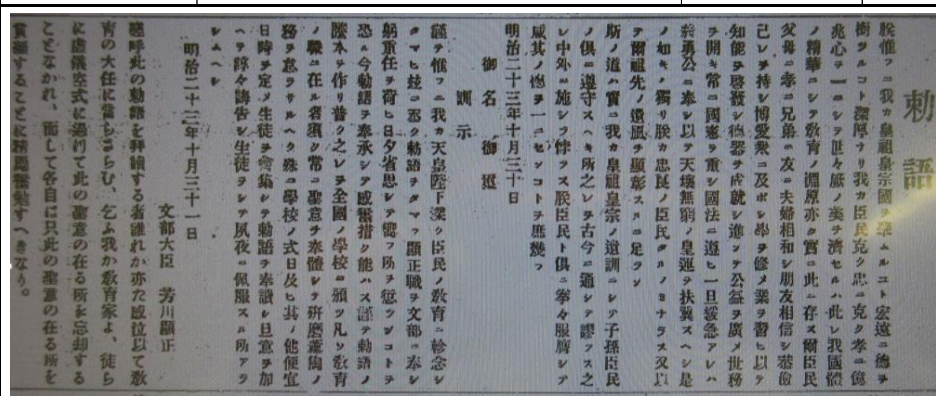 勅語
朕惟フニ我カ皇祖皇宗國ヲ肇ムルコト宏遠ニ德ヲ
樹ツルコト深厚ナリ我カ臣民克ク忠ニ克ク孝ニ億
兆心ヲ一ニシテ世々厥ノ美ヲ濟セルハ此レ我國體
ノ精華ニシテ敎育ノ淵源亦實ニ此ニ存ス爾臣民
父母ニ孝ニ兄弟ニ友ニ夫婦相和シ朋友相信シ恭儉
己レヲ持シ博愛衆ニ及ボシ學ヲ修メ業ヲ習ヒ以テ
知能ヲ啓發シ德器ヲ成就シ進テ公益ヲ廣メ世務
ヲ開キ常ニ國憲ヲ重シ國法ニ遵ヒ一旦緩急アレハ
義勇公ニ奉シ以テ天壤無窮ノ皇運ヲ扶翼スヘシ是
ノ如キハ獨リ朕カ忠良ノ臣民タルノミナラス又以
テ爾祖先ノ遺風ヲ顯彰スルニ足ラン
斯ノ道ハ實ニ我カ皇祖皇宗ノ遺訓ニシテ子孫臣民
ノ俱ニ遵守スヘキ所之レヲ古今ニ通シテ謬ラス之
レヲ中外ニ施シテ悖ラス朕臣民ト俱ニ拳々服膺シテ
咸其ノ德ヲ一ニセンコトヲ庶幾フ
明治二十三年十月三十日
御名御璽
訓示
謹テ惟フニ我カ天皇陛下深ク臣民ノ敎育ニ軫念シ
タマヒ玆ニ忝ク勅語ヲタマフ顯正職ヲ文部ニ奉シ
躬重任ヲ荷ヒ日夕省思シテ嚮フ所ヲ愆ランコトヲ
恐ル今勅語ヲ奉承シテ感奮措ク能ハス謹テ勅語ノ
謄本ヲ作リ普ク之レヲ全國ノ學校ニ頒ツ凡ソ敎育
ノ職ニ在ル者須ク常ニ聖意ヲ奉體シテ硏磨薰陶ノ
務ヲ怠ラサルヘク殊ニ學校ノ式日及ヒ其ノ他便宜
日時ヲ定メ生徒ヲ會集シテ勅語ヲ奉讀シ且意ヲ加
ヘテ諄々誨告シ生徒ヲシテ夙夜ニ佩服スル所アラ
シムヘシ
明治二十三年十月三十一日
文部大臣 芳川顯正
嗚呼此の勅語を拜讀する者誰れか亦た感泣以て敎
育の大任に當らざらむ、乞ふ我か敎育家よ、徒ら
に虛儀空式に過りて此の聖意の在る所を忘却する
ことなかれ、而して各自に只此の聖意の在る所を
貫徹することに勉むへきなり。